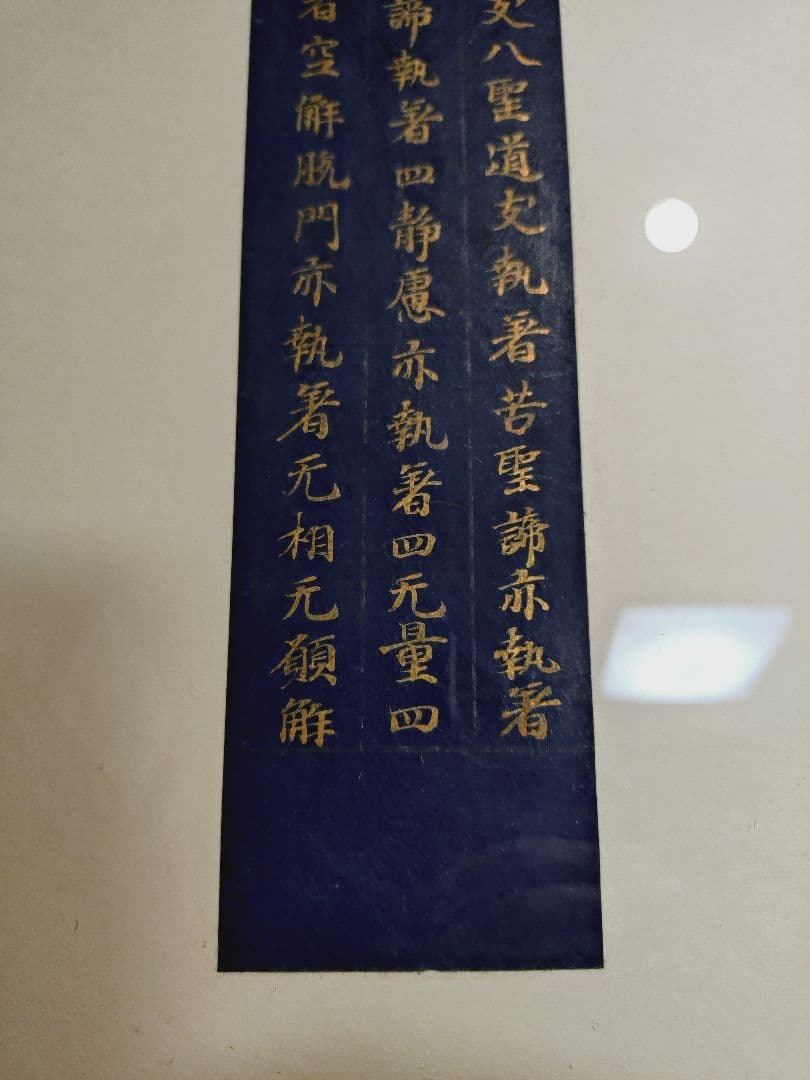 支八聖道支執著苦聖諦亦執著
諦執著四静慮亦執著四无量四
著空解脱門亦執著无相无願解